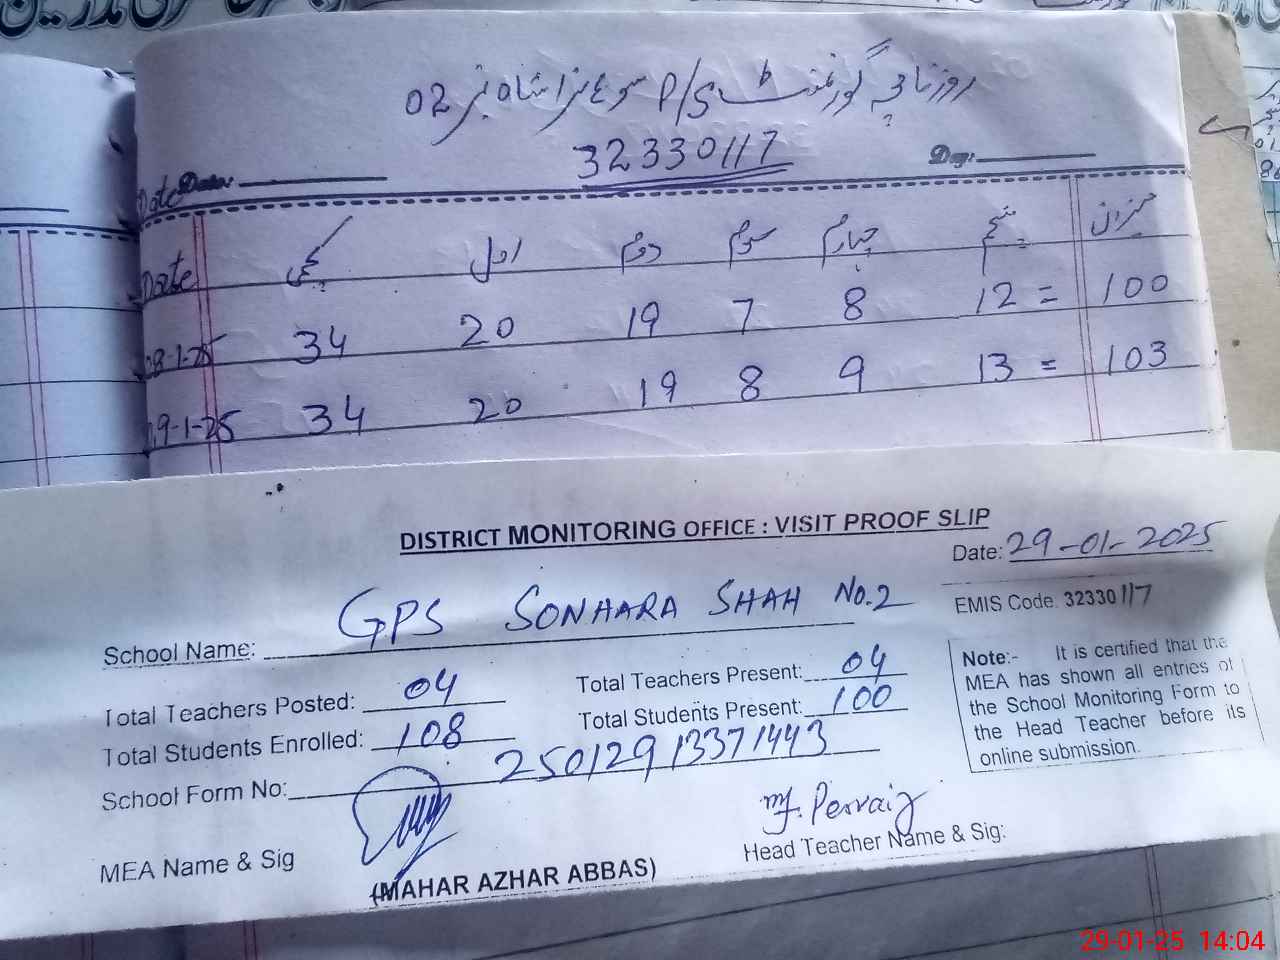 روزنامچہ گورنمنٹ P/S سوہارا شاہ نمبر 02
32330117
Date Date: Day:
Date کچی اول دوم سوم چہارم پنجم میزان
28-1-25 34 20 19 7 8 12 = 100
29-1-25 34 20 19 8 9 13 = 103
DISTRICT MONITORING OFFICE : VISIT PROOF SLIP
Date: 29-01-2025
School Name: GPS SONHARA SHAH No.2
EMIS Code. 32330117
Total Teachers Posted: 04 Total Teachers Present: 04
Total Students Enrolled: 108 Total Students Present: 100
School Form No: 25012913371443
Note:- It is certified that the
MEA has shown all entries of
the School Monitoring Form to
the Head Teacher before its
online submission.
MEA Name & Sig
(MAHAR AZHAR ABBAS)
M. Pervaiz
Head Teacher Name & Sig:
29-01-25 14:04